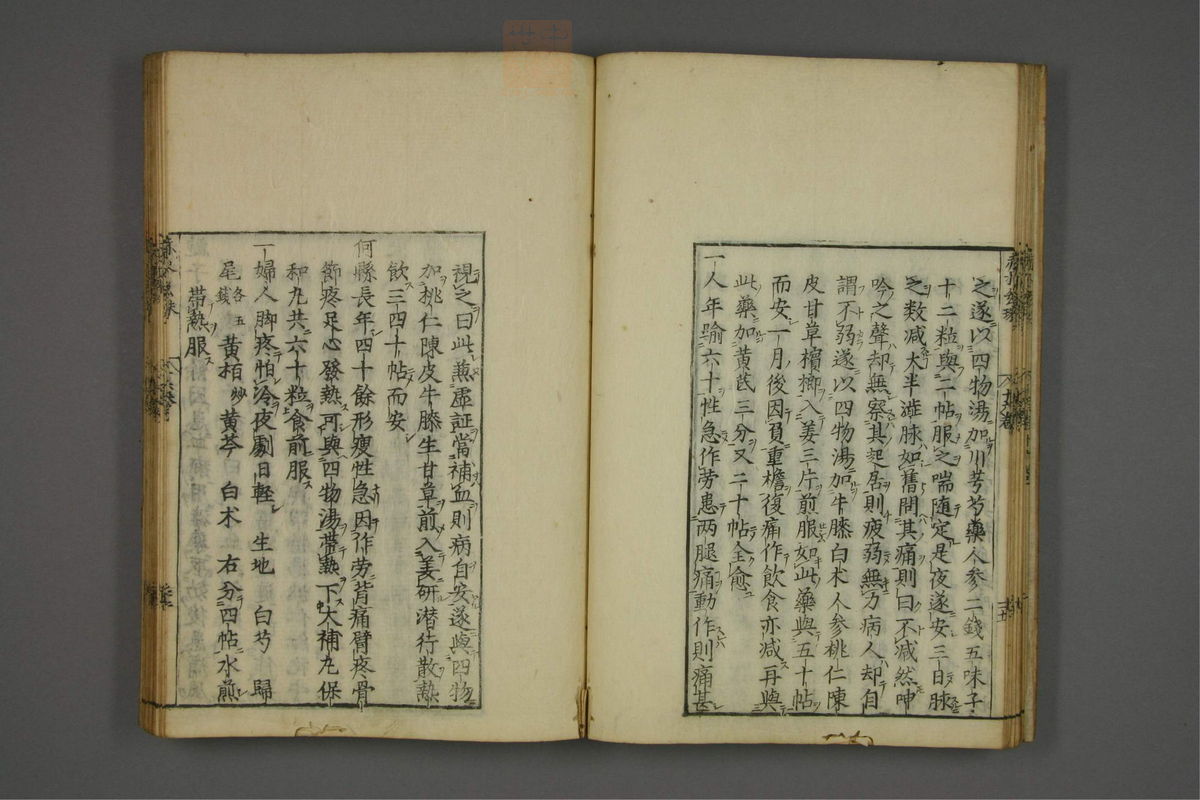 之遂以四物湯加川芎芍藥人參二錢五味子
十二粒與二帖服之喘隨定是夜遂安三日脉
之数减大半澁脉如舊問其痛則曰不减然呻
吟之聲却無察其起居則疲弱無力病人却自
謂不弱遂以四物湯加牛膝白术人參桃仁陳
皮甘草檳榔入姜三片煎服如此藥與五十帖
而安一月後因負重檐復痛作飲食亦减再與
此藥加黄芪三分又二十帖全愈
一人年踰六十性急作劳患两腿痛動作則痛甚
視之曰此蒹虚証當補血則病自安遂與四物
加桃仁陳皮牛膝生甘草煎入姜研潜行散熱
飲三四十帖而安
何縣長年四十餘形瘦性急因作劳背痛臂疼骨
節疼足心發熱可與四物湯帶熱下大補丸保
和丸共六十粒食前服
一婦人脚疼怕冷夜劇日輕 生地 白芍 歸
尾各五錢 黄栢炒 黄芩 白术 右分四帖水煎
帶熱服